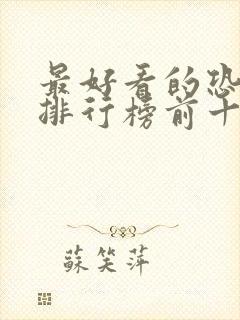 最好看的恐
排行榜前十
蘇笑萍